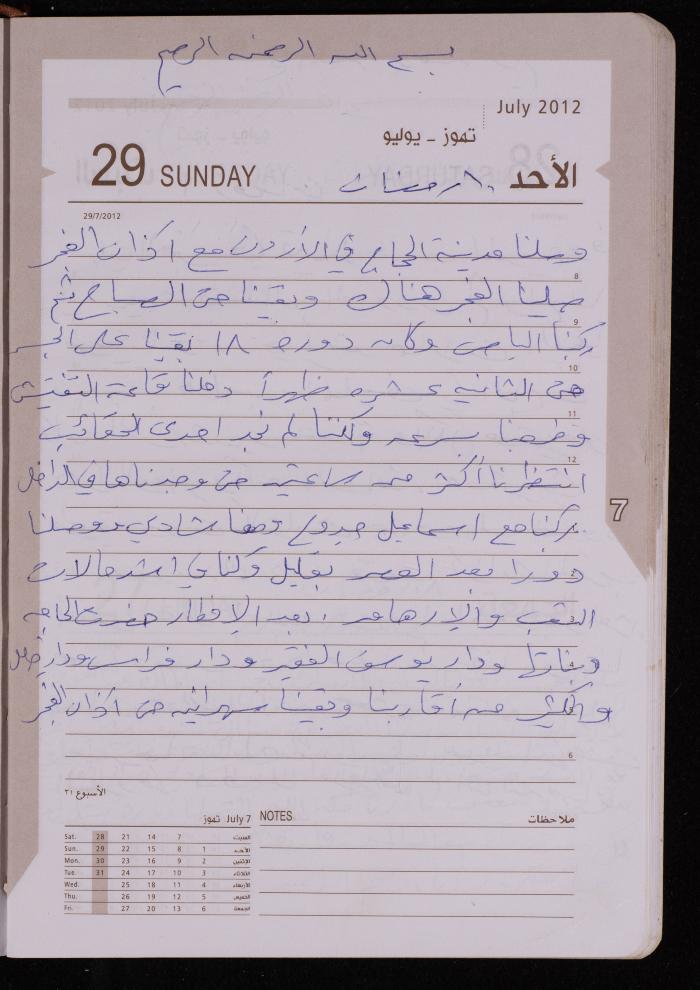 بسم الله الرحمن الرحيم
July 2012
تموز - يوليو
29 SUNDAY
الأحد
رمضان
29/7/2012
وصلنا مدينة الحجاج في الأردن مع اذان الفجر
8
صلينا الفجر هناك وبقينا حتى الصباح ثم
9
ركبنا الباص وكان دوره ١٨ بقينا على الجسر
10
حتى الثانيه عشره ظهراً دخلنا قاعة التفتيش
11
بسرعه ولكننا لم نجد احدى الحقائب
12
انتظرنا أكثر من ساعتين حتى وجدناها في الداخل
7
ركبنا مع اسماعيل شادي ووصلنا
2
دورا بعد العصر بقليل وكنا في اشد حالات
3
التعب والارهاق . بعد الافطار حضرت الحاجه
4
وبناتها ودار يوسف الفقير ودار فراس ودار
والكثير من أقاربنا وبقينا سهرانين حتى اذان الفجر
6
الأسبوع ٣١
July 7 تموز
Sat. 28 21 14 7 السبت
Sun. 29 22 15 8 1 الأحد
Mon. 30 23 16 9 2 الإثنين
Tue. 31 24 17 10 3 الثلاثاء
Wed. 25 18 11 4 الأربعاء
Thu. 26 19 12 5 الخميس
Fri. 27 20 13 6 الجمعة
NOTES
ملاحظات